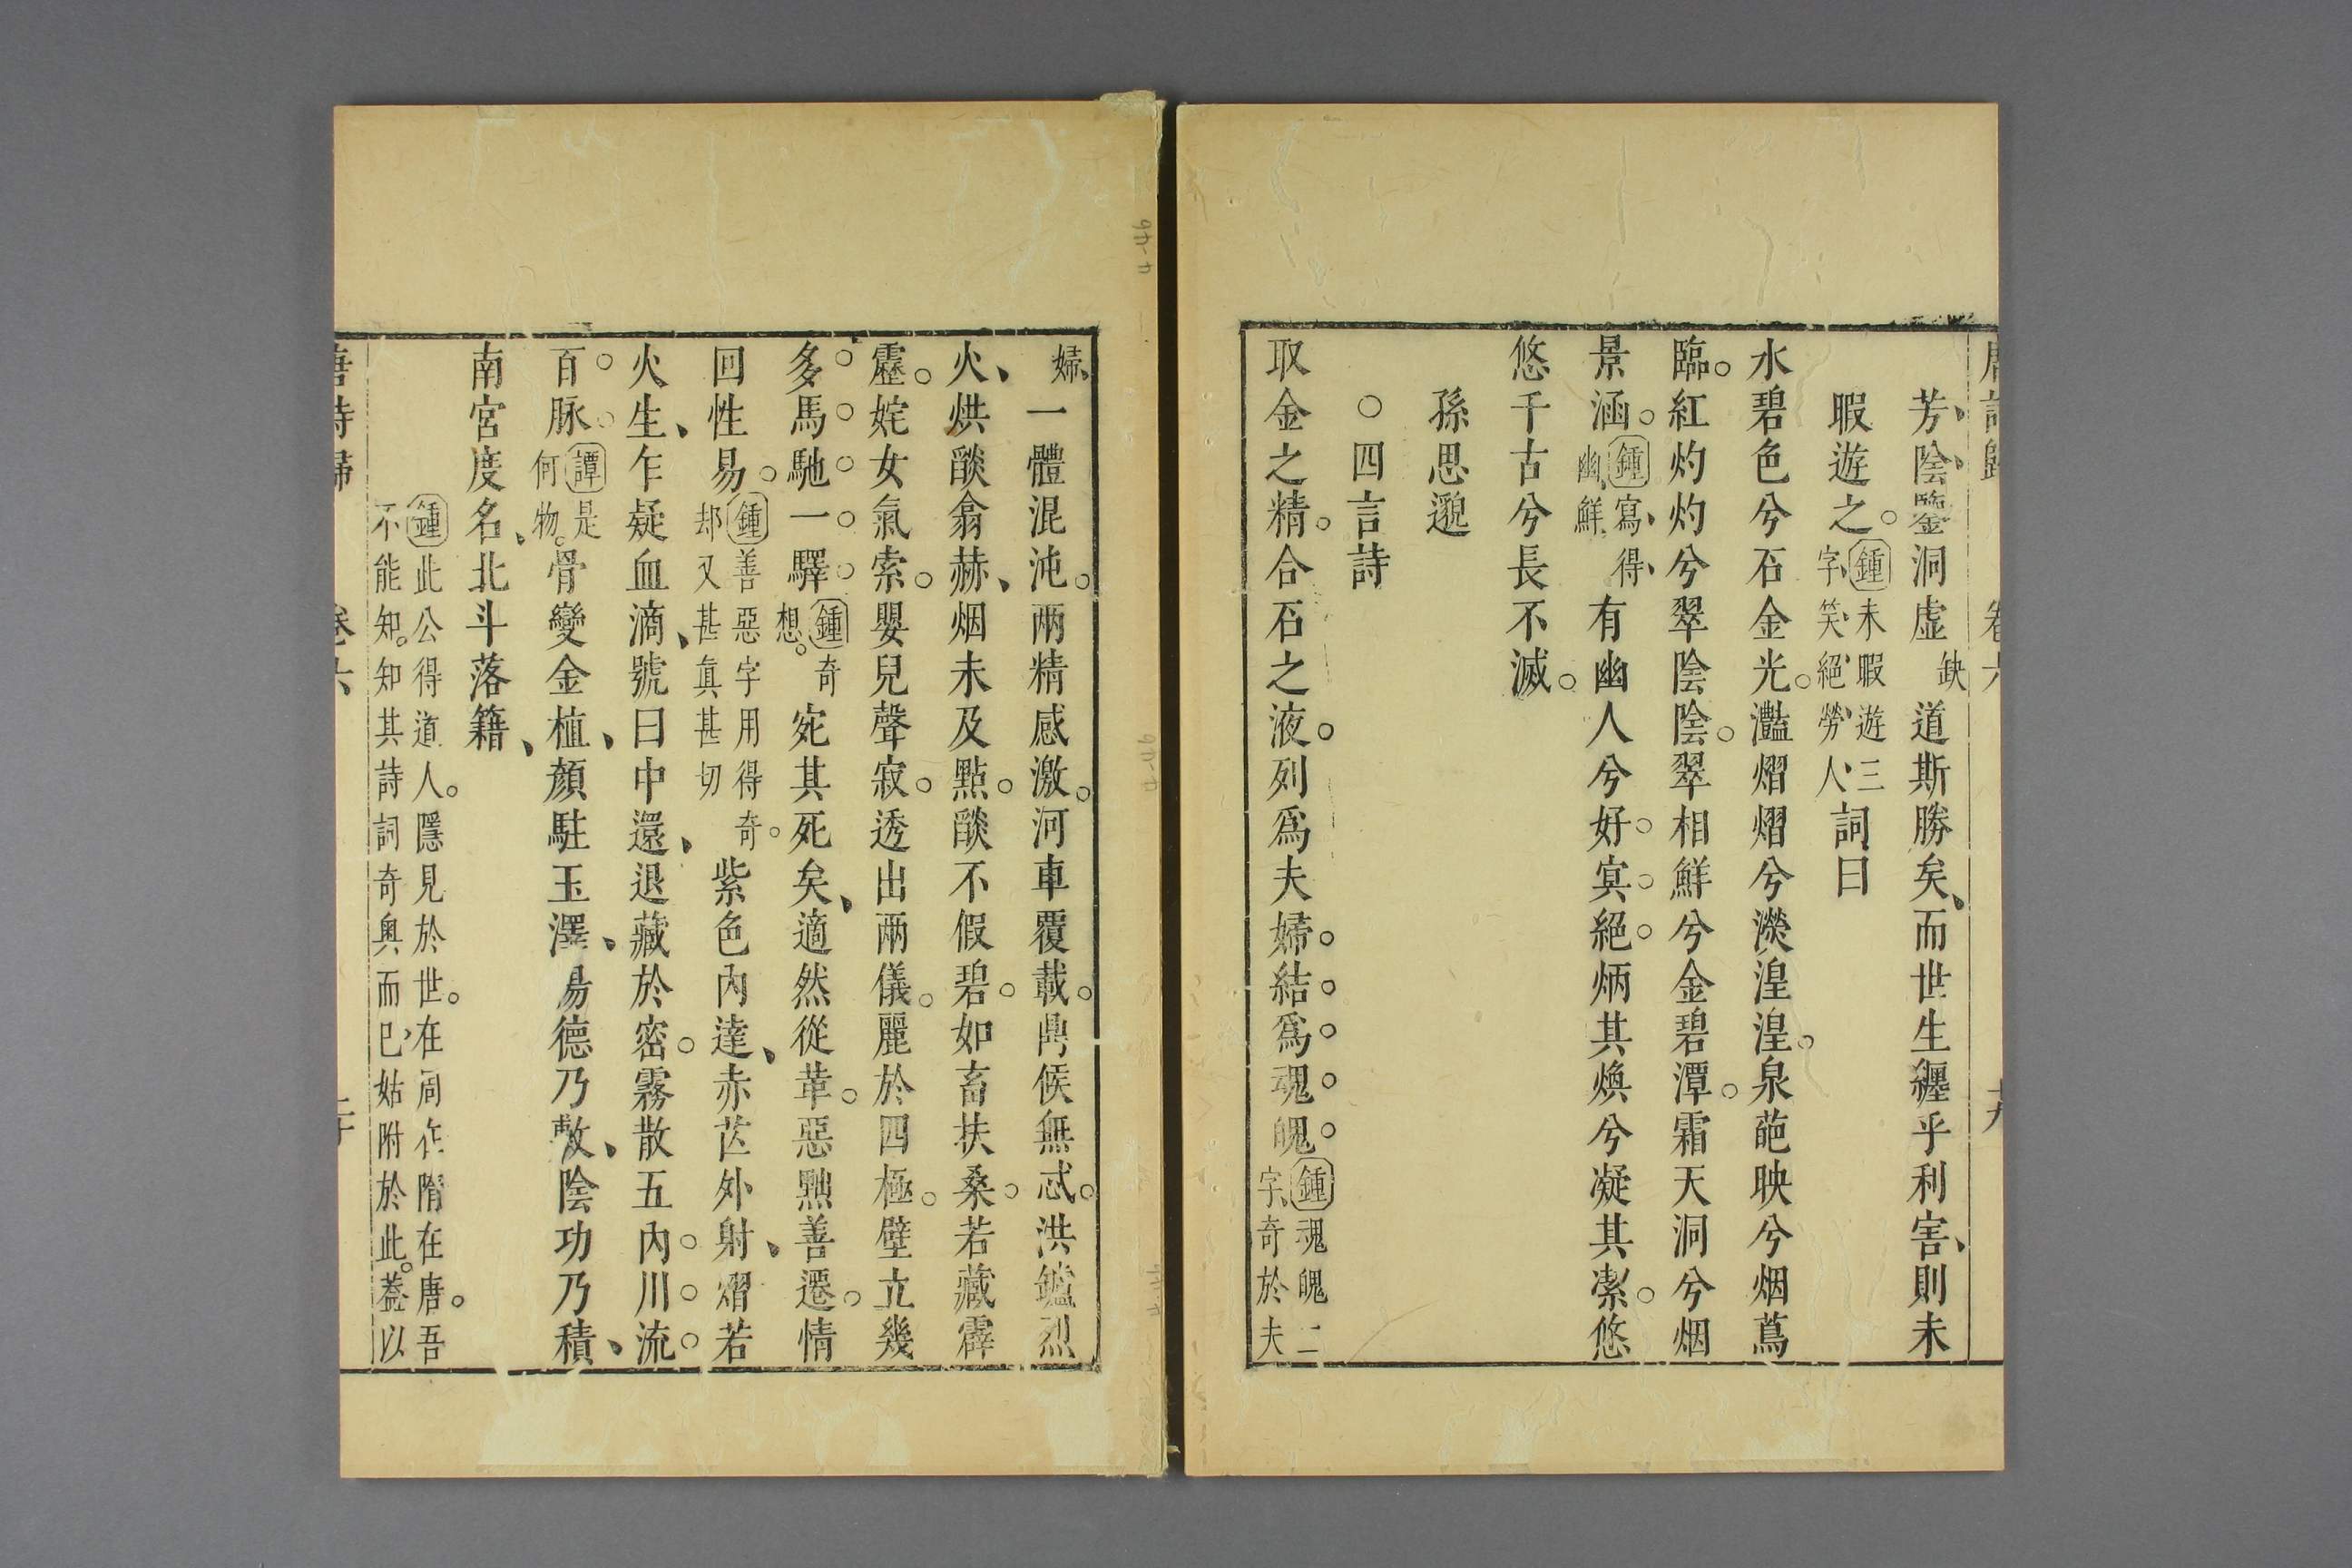 唐詩歸 卷六 十九
芳陰鑒洞虛缺道斯勝矣而世生纒乎利害則未
暇遊之鍾未暇遊三字笑絕勞人詞曰
水碧色兮石金光灩熠熠兮濙湟湟泉葩映兮烟蔦
臨紅灼灼兮翠陰陰翠相鮮兮金碧潭霜天洞兮烟
景涵鍾寫得幽鮮有幽人兮好冥絕炳其煥兮凝其潔悠
悠千古兮長不滅
孫思邈
○四言詩
取金之精合石之液列爲夫婦結爲魂魄鍾魂魄二字奇於夫
婦一體混沌兩精感激河車覆載鼎候無忒洪鑪烈
火烘燄翕赫烟未及點燄不假碧如畜扶桑若藏霹
靂姹女氣索嬰兒聲寂透出兩儀麗於四極壁立幾
多馬馳一驛鍾奇想宛其死矣適然從革惡黜善遷情
回性易鍾善惡字用得奇却又甚眞甚切紫色內達赤芒外射熠若
火生乍疑血滴號曰中還退藏於密霧散五內川流
百脉譚是何物骨變金植顏駐玉澤昜德乃敷陰功乃積
南宮度名北斗落籍
鍾此公得道人隱見於世在周在隋在唐吾
不能知知其詩詞奇奧而已姑附於此葢以
唐詩歸 卷六 二十